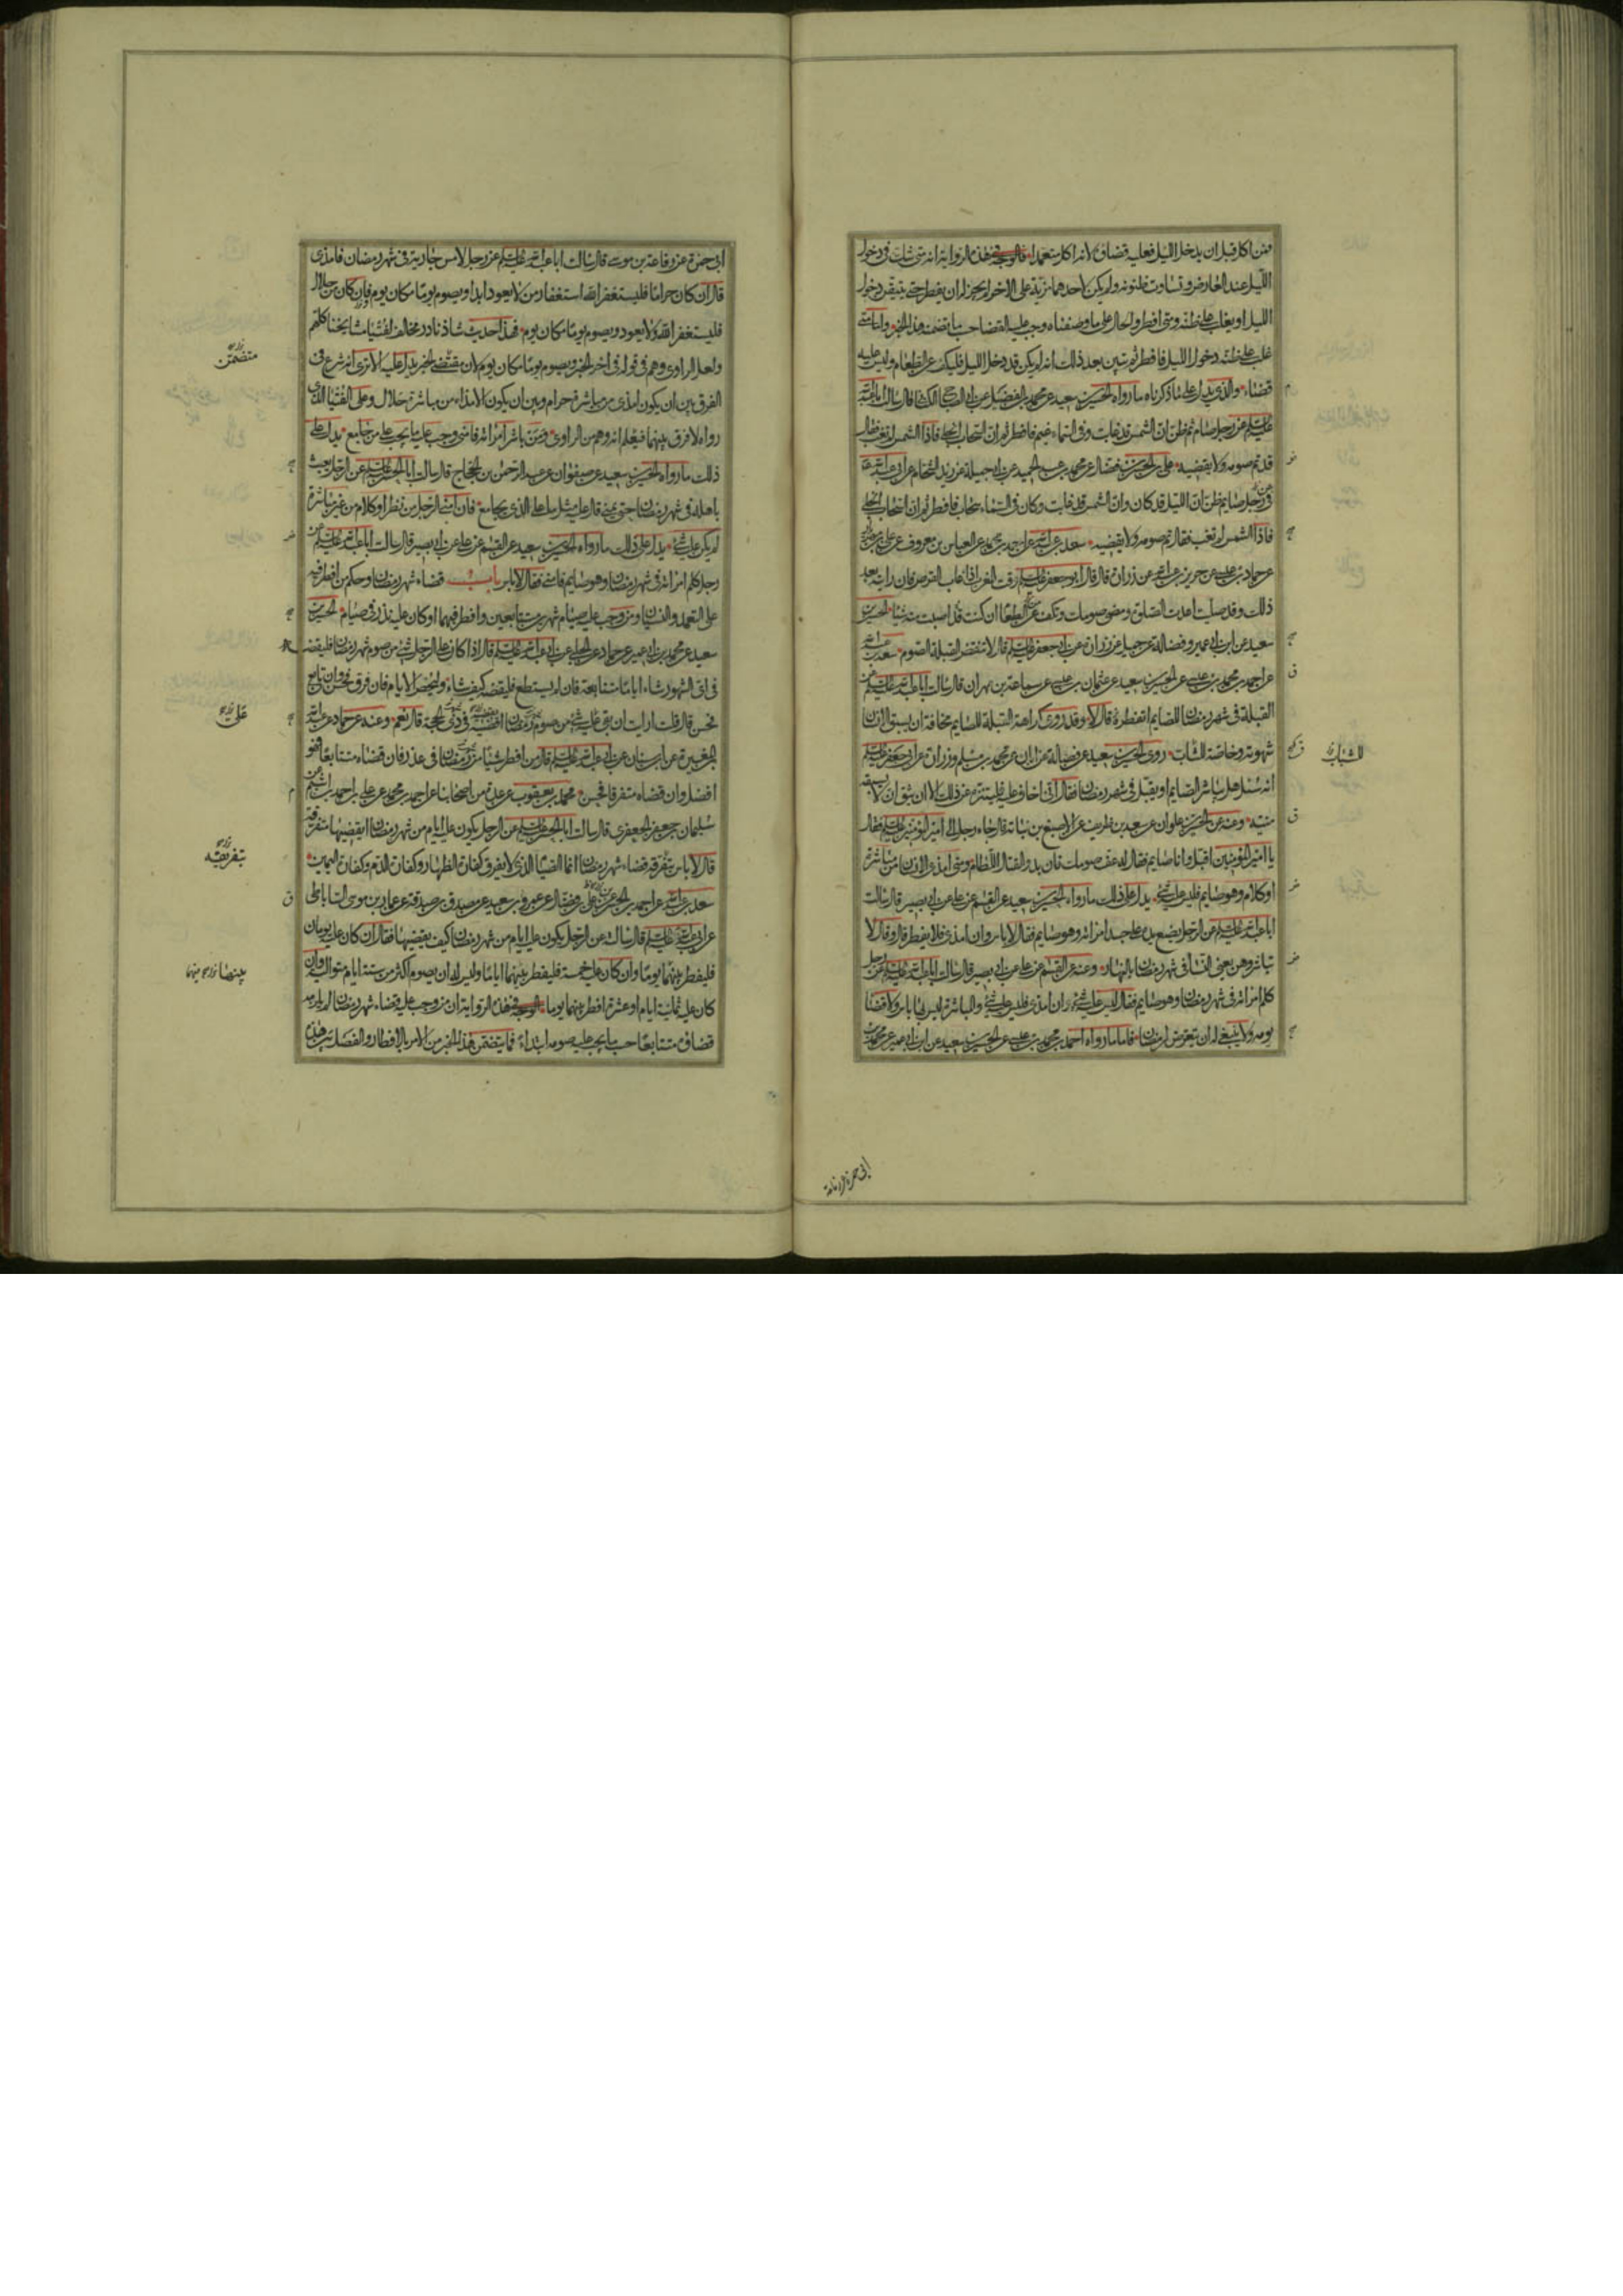 فمن اكل قبل ان يدخل الليل فعليه قضاؤه لانه اكل متعمدا فالوجه فى هذه الرواية انه متى شك فى دخول
الليل عند العارض وتساوت ظنونه ولم يكن لاحدهما مزية على الاخر لم يجز له ان يفطر حتى يتيقن دخول
الليل او يغلب على ظنه ومتى افطر والحال على ما وصفناه وجب عليه القضاء حسب ما تضمنه هذا الخبر واما متى
غلب على ظنه دخول الليل فافطر ثم تبين بعد ذلك انه لم يكن قد دخل الليل فليكف عن الطعام وليس عليه
قضاء والذى يدل على ما ذكرناه ما رواه الحسين بن سعيد عن محمد بن الفضيل عن ابى الصباح الكنانى قال سالت ابا عبد الله
عليه السلم عن رجل صام ثم ظن ان الشمس قد غابت وفى السماء غيم فافطر ثم ان السحاب انجلى فاذا الشمس لم تغب فقال
قد تم صومه ولا يقضيه على بن الحسن بن فضال عن محمد بن عبد الحميد عن ابى جميلة عن زيد الشحام عن ابى عبد الله
فى رجل صايم ظن ان الليل قد كان وان الشمس قد غابت وكان فى السماء سحاب فافطر ثم ان السحاب انجلى
فاذا الشمس لم تغب فقال تم صومه ولا يقضيه سعد بن عبد الله عن احمد بن محمد عن العباس بن معروف عن على بن مهزيار
عن حماد بن عيسى عن حريز بن عبد الله عن زرارة قال قال ابو جعفر عليه السلم وقت المغرب اذا غاب القرص فان رايته بعد
ذلك وقد صليت اعدت الصلوة ومضى صومك وتكف عن الطعام ان كنت قد اصبت منه شيئا الحسين بن
سعيد عن ابن ابى عمير وفضالة عن جميل عن زرارة عن ابى جعفر عليه السلم قال لا تنقض القبلة الصوم سعد بن عبد الله
عن احمد بن محمد بن عيسى عن الحسين بن سعيد عن عثمان بن عيسى عن سماعة بن مهران قال سالت ابا عبد الله عليه السلم عن
القبلة فى شهر رمضان للصايم اتفطره قال لا وقد روى كراهة القبلة للصايم مخافة ان يسبق الانسان
شهوته وخاصة الشاب روى الحسين بن سعيد عن فضالة عن ابان عن محمد بن مسلم وزرارة عن ابى جعفر عليه السلم
للشباب
انه سئل هل يباشر الصايم او يقبل فى شهر رمضان فقال انى اخاف عليه فليتنزه عن ذلك الا ان يثق ان لا يسبقه
منيه وعنه عن الحسين بن علوان عن سعد بن طريف عن الاصبغ بن نباتة قال جاء رجل الى امير المؤمنين عليه السلم فقال
يا امير المؤمنين اقبل وانا صايم فقال له عف صومك فان بدو القتال اللطام ومتى امذى الانسان من مباشرة
او كلام وهو صايم فليس عليه شىء يدل على ذلك ما رواه الحسين بن سعيد عن القسم عن على عن ابى بصير قال سالت
ابا عبد الله عليه السلم عن الرجل يضع يده على جسد امراته وهو صايم فقال لا باس وان امذى فلا يفطر قال وقال لا
تباشروهن يعنى الغشيان فى شهر رمضان بالنهار وعنه عن القسم عن على عن ابى بصير قال سالت ابا عبد الله عليه السلم عن رجل
كلم امراته فى شهر رمضان وهو صايم فقال ليس عليه شىء وان امذى فليس عليه شىء والمباشرة ليس بها باس ولا قضاء
يومه ولا ينبغى له ان يتعرض لرمضان فاما ما رواه احمد بن محمد بن عيسى عن الحسين بن سعيد عن ابن ابى عمير عن محمد بن
ابى حمزة عن رفاعة
ابى حمزة عن رفاعة بن موسى قال سالت ابا عبد الله عليه السلم عن رجل لامس جارية فى شهر رمضان فامذى
قال ان كان حراما فليستغفر الله استغفار من لا يعود ابدا ويصوم يوما مكان يوم فان كان من حلال
فليستغفر الله ولا يعود ويصوم يوما مكان يوم فهذا حديث شاذ نادر مخالف لفتيا مشايخنا كلهم
ولعل الراوى وهم فى قوله فى اخر الخبر ويصوم يوما مكان يوم لان مقتضى الخبر يدل عليه الا ترى انه شرع فى
متضمن
الفرق بين ان يكون امذى من مباشرة حرام وبين ان يكون الامذاء من مباشرة حلال وعلى الفتيا الذى
رواه لا فرق بينهما فيعلم انه وهم من الراوى ومن باشر امراته فامنى وجب عليه ما يجب على من جامع يدل على
ذلك ما رواه الحسين بن سعيد عن صفوان عن عبد الرحمن بن الحجاج قال سالت ابا الحسن عليه السلم عن الرجل يعبث
باهله فى شهر رمضان حتى يمنى قال عليه مثل ما على الذى يجامع فان امنى الرجل من نظر او كلام من غير مباشرة
لم يكن عليه شىء يدل على ذلك ما رواه الحسين بن سعيد عن القسم عن على عن ابى بصير قال سالت ابا عبد الله عليه السلم عن
رجل كلم امراته فى شهر رمضان وهو صايم فامنى فقال لا باس باب قضاء شهر رمضان وحكم من افطر فيه
على التعمد والنسيان ومن وجب عليه صيام شهرين متتابعين وافطر فيهما او كان عليه نذر فى صيام الحسين بن
سعيد عن محمد بن ابى عمير عن حماد عن الحلبى عن ابى عبد الله عليه السلم قال اذا كان على الرجل شىء من صوم شهر رمضان فليقضه
فى اى الشهور شاء اياما متتابعة فان لم يستطع فليقضه كيف شاء وليحص الايام فان فرق فحسن وان تابع
فحسن قال قلت ارايت ان بقى عليه شىء من صوم رمضان ايقضيه فى ذى الحجة قال نعم وعنه عن حماد عن عبد الله
على
بن المغيرة عن ابن سنان عن ابى عبد الله عليه السلم قال من افطر شيئا من رمضان فى عذر فان قضاه متتابعا فهو
افضل وان قضاه متفرقا فحسن محمد بن يعقوب عن عدة من اصحابنا عن احمد بن محمد عن على بن احمد بن اشيم عن
سليمان بن جعفر الجعفرى قال سالت ابا الحسن عليه السلم عن الرجل يكون عليه ايام من شهر رمضان ايقضيها متفرقة
قال لا باس بتفرقة قضاء شهر رمضان انما الصيام الذى لا يفرق كفارة الظهار وكفارة الدم وكفارة اليمين
بتفريقه
سعد بن عبد الله عن احمد بن الحسن بن على بن فضال عن عمرو بن سعيد عن مصدق بن صدقة عن عمار بن موسى الساباطى
عن ابى عبد الله عليه السلم قال سالته عن الرجل يكون عليه ايام من شهر رمضان كيف يقضيها فقال ان كان عليه يومان
فليفطر بينهما يوما وان كان عليه خمسة فليفطر بينهما اياما وليس له ان يصوم اكثر من ستة ايام متوالية وان
كان عليه ثمانية ايام او عشرة افطر بينهما يوما فالوجه فى هذه الرواية ان من وجب عليه قضاء شهر رمضان لم يلزمه
قضاؤه متتابعا حسب ما يجب عليه صومه ابتداء فما يتضمن هذا الخبر من الامر بالافطار والفصل بين هذه